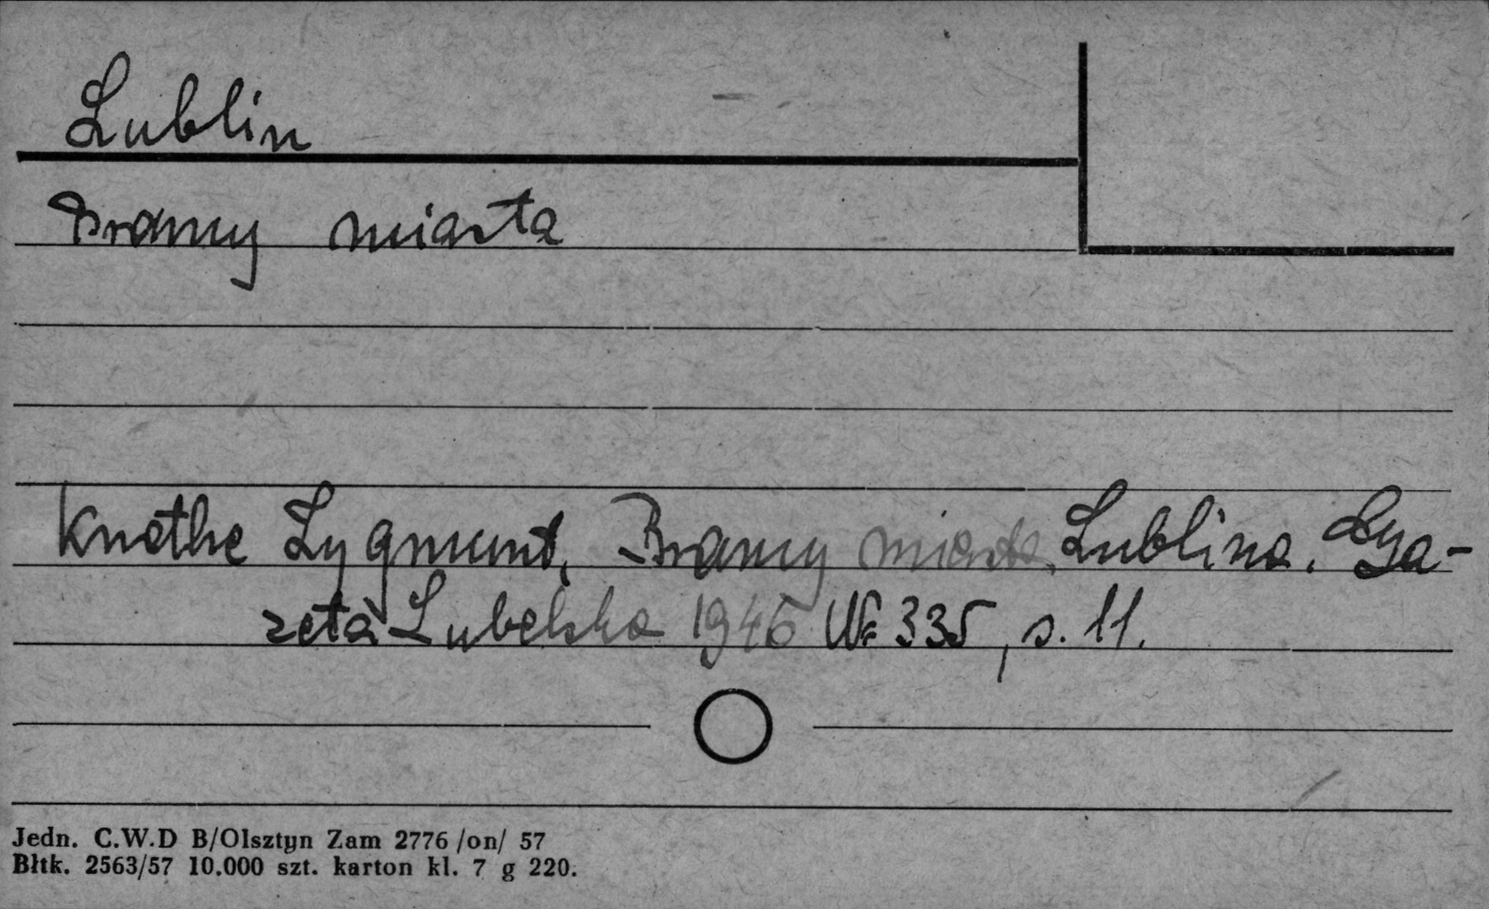 Lublin
Bramy miasta
Knothe Zygmunt, Bramy miasta Lublina. Ga-
zeta Lubelska 1946 Nr 335, s. 11.
Jedn. C.W.D B/Olsztyn Zam 2776 /on/ 57
Błtk. 2563/57 10.000 szt. karton kl. 7 g 220.